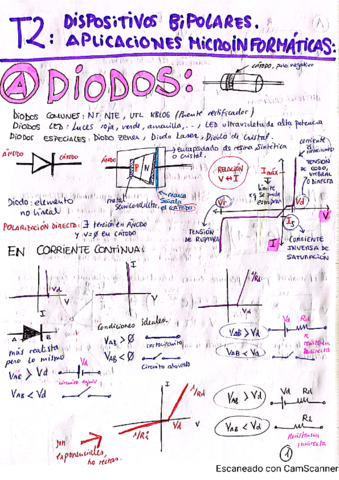 T2: DISPOSITIVOS BIPOLARES.
APLICACIONES MICROINFORMÁTICAS:
A DIODOS:
CÁTODO, polo negativo
DIODOS COMUNES: NT, NTE, UTL KBL06 (Puente rectificador)
DIODOS LED: Luces roja, verde, amarilla,... / LED ultravioleta de alta potencia
DIODOS ESPECIALES: Diodo Zener, Diodo Laser, Diodo de Cristal.
ÁNODO
CÁTODO
ÁNODO
P
N
Encapsulado de resina sintética
o cristal.
metal
Semiconductor
señala
el CÁTODO
Diodo: elemento
no lineal
POLARIZACIÓN DIRECTA: ∃ tensión en ÁNODO
y V=∅ en CÁTODO
RELACIÓN
V ↔ I
I
corriente
TENSIÓN
DE CODO,
UMBRAL
O DIRECTA
Vr
Vd
V
Is
I
TENSIÓN
DE RUPTURA
CORRIENTE
INVERSA DE
SATURACIÓN
EN CORRIENTE CONTINUA:
I
Vd
V
I
V
I
1/Rd
Vd
V
A
B
más realista
pero lo mismo
VAB > Vd
Vd
VAB < Vd
Condiciones ideales:
VAB > ∅
cortocircuito
VAB < ∅
Circuito abierto
VAB > Vd
Vd
Rd
VAB < Vd
resistencia
directa
I
1/Rd
Vd
V
1/Ri
son
exponenciales,
no rectas.
VAB > Vd
Vd
Rd
VAB < Vd
Ri
Resistencia
inversa
1
Escaneado con CamScanner